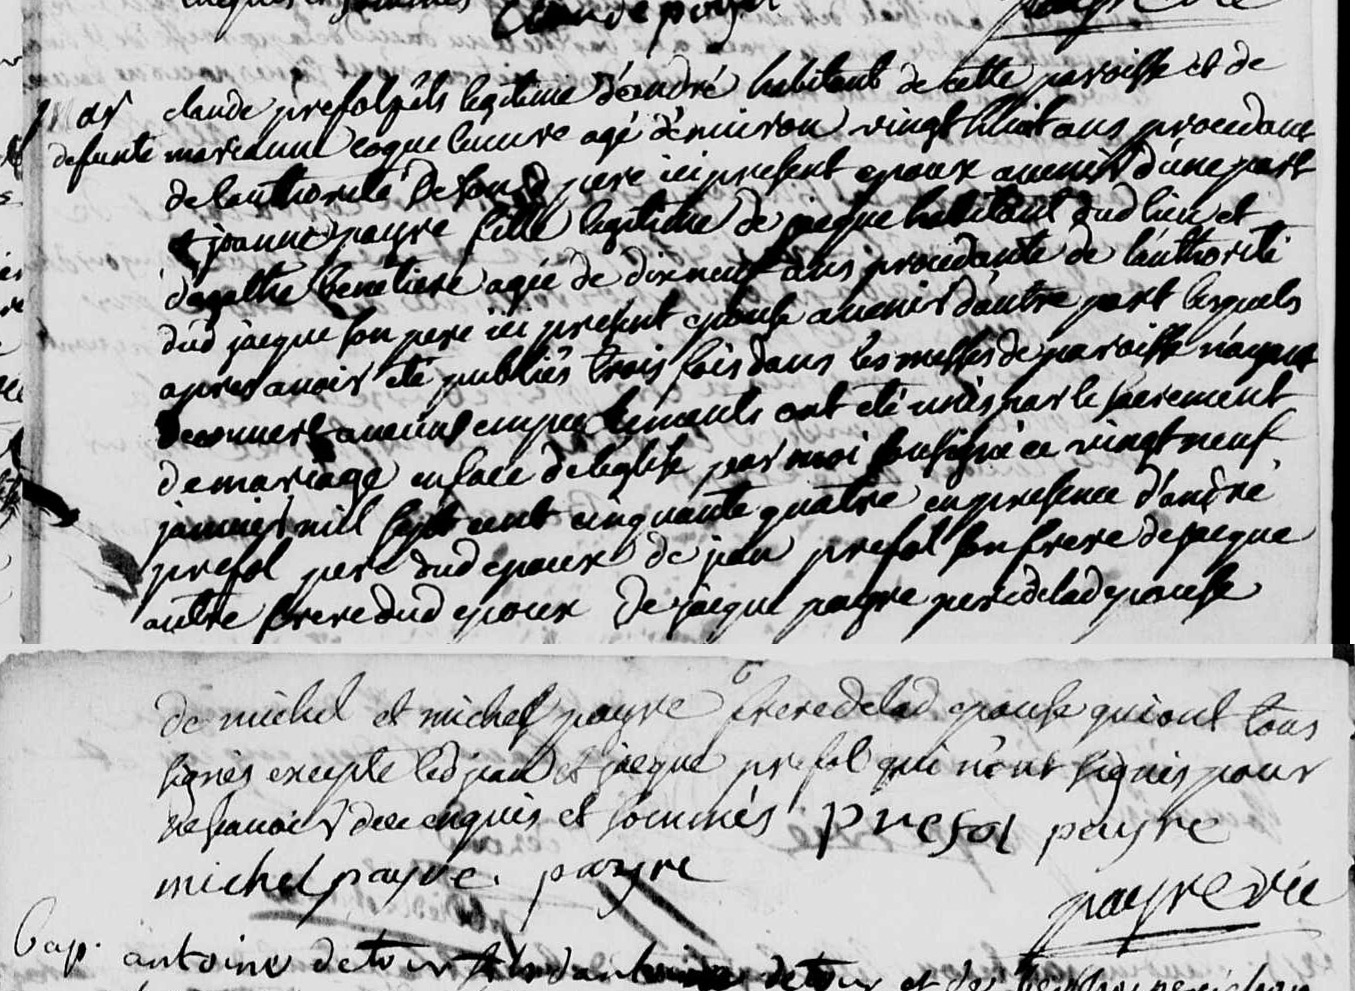 Claude payre
mar claude prefol fils legitime d'andré habitant de cette paroisse et de
defunte marianne coquelucure agé d'environ vingt huit ans procedant
de lauthorité de sond pere ici present epoux avenir d'une part
et joanne payre fille legitime de jacque habitant dud lieu et
d'agathe benetiere agée de dixneuf ans procedante de lauthorité
dud jacque son pere ici present epouse avenir d'autre part lesquels
apres avoir eté publiés trois fois dans les messes de paroisse n'ayant
decouvert aucuns empechements ont eté unis par le sacrement
de mariage en face de leglise par moi soussigné ce vingt neuf
janvier mil sept cent cinquante quatre en presence d'andré
prefol pere dud epoux de jean prefol son frere de jacque
autre frere dud epoux de jacque payre pere de lad epouse
de michel et michel payre frere de lad epouse qui ont tous
signés excepte led jean et jacque prefol qui n'ont signés pour
ne scavoir de ce enquis et sommés prefol payre
michel payre. payre
payre vic
Bap. antoine detour fils d'antoine detour et de